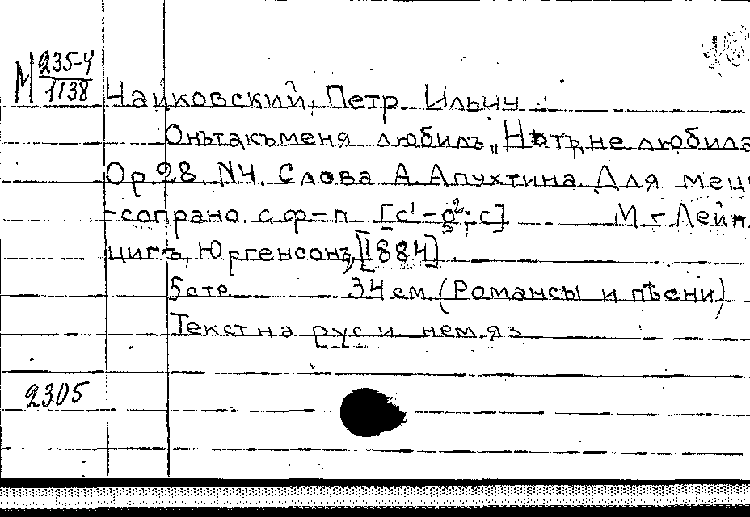 М 235-4
1138
Чайковский, Петр Ильич.
Онъ такъ меня любилъ „Нѣтъ, не любила
Op. 28 N4. Слова А. Апухтина. Для мецц
-сопрано с ф-п [c¹-g²; c] М.-Лейп
цигъ, Юргенсонъ, [1884]
5 стр. 34 см. (Романсы и пѣсни)
Текст на рус и нем. яз
2305